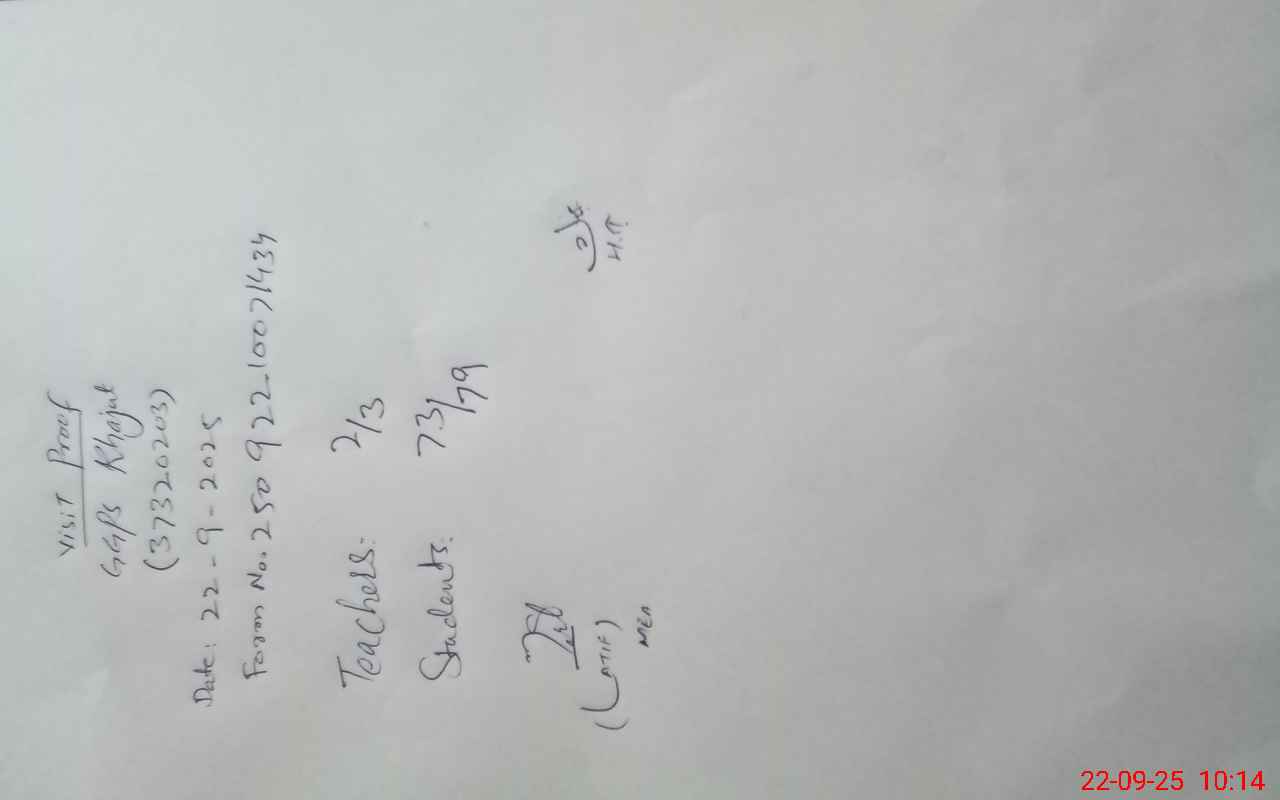 Visit Proof
GGPS Khajut
(37320203)
Date: 22-9-2025
Form No. 250922-10071434
Teachers: 2/3
Students: 73/79
(LATIF)
MEA
H.T
22-09-25 10:14